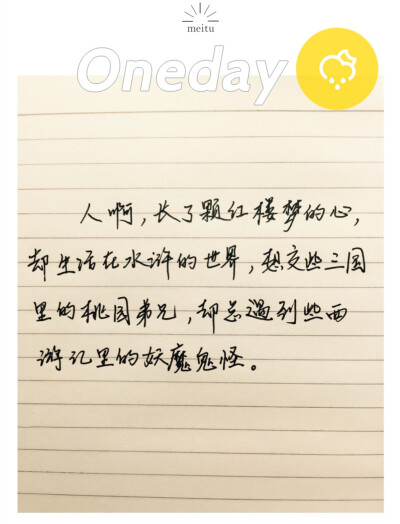 meitu
Oneday
人啊，长了颗红楼梦的心，
却生活在水浒的世界，想交些三国
里的桃园弟兄，却总遇到些西
游记里的妖魔鬼怪。